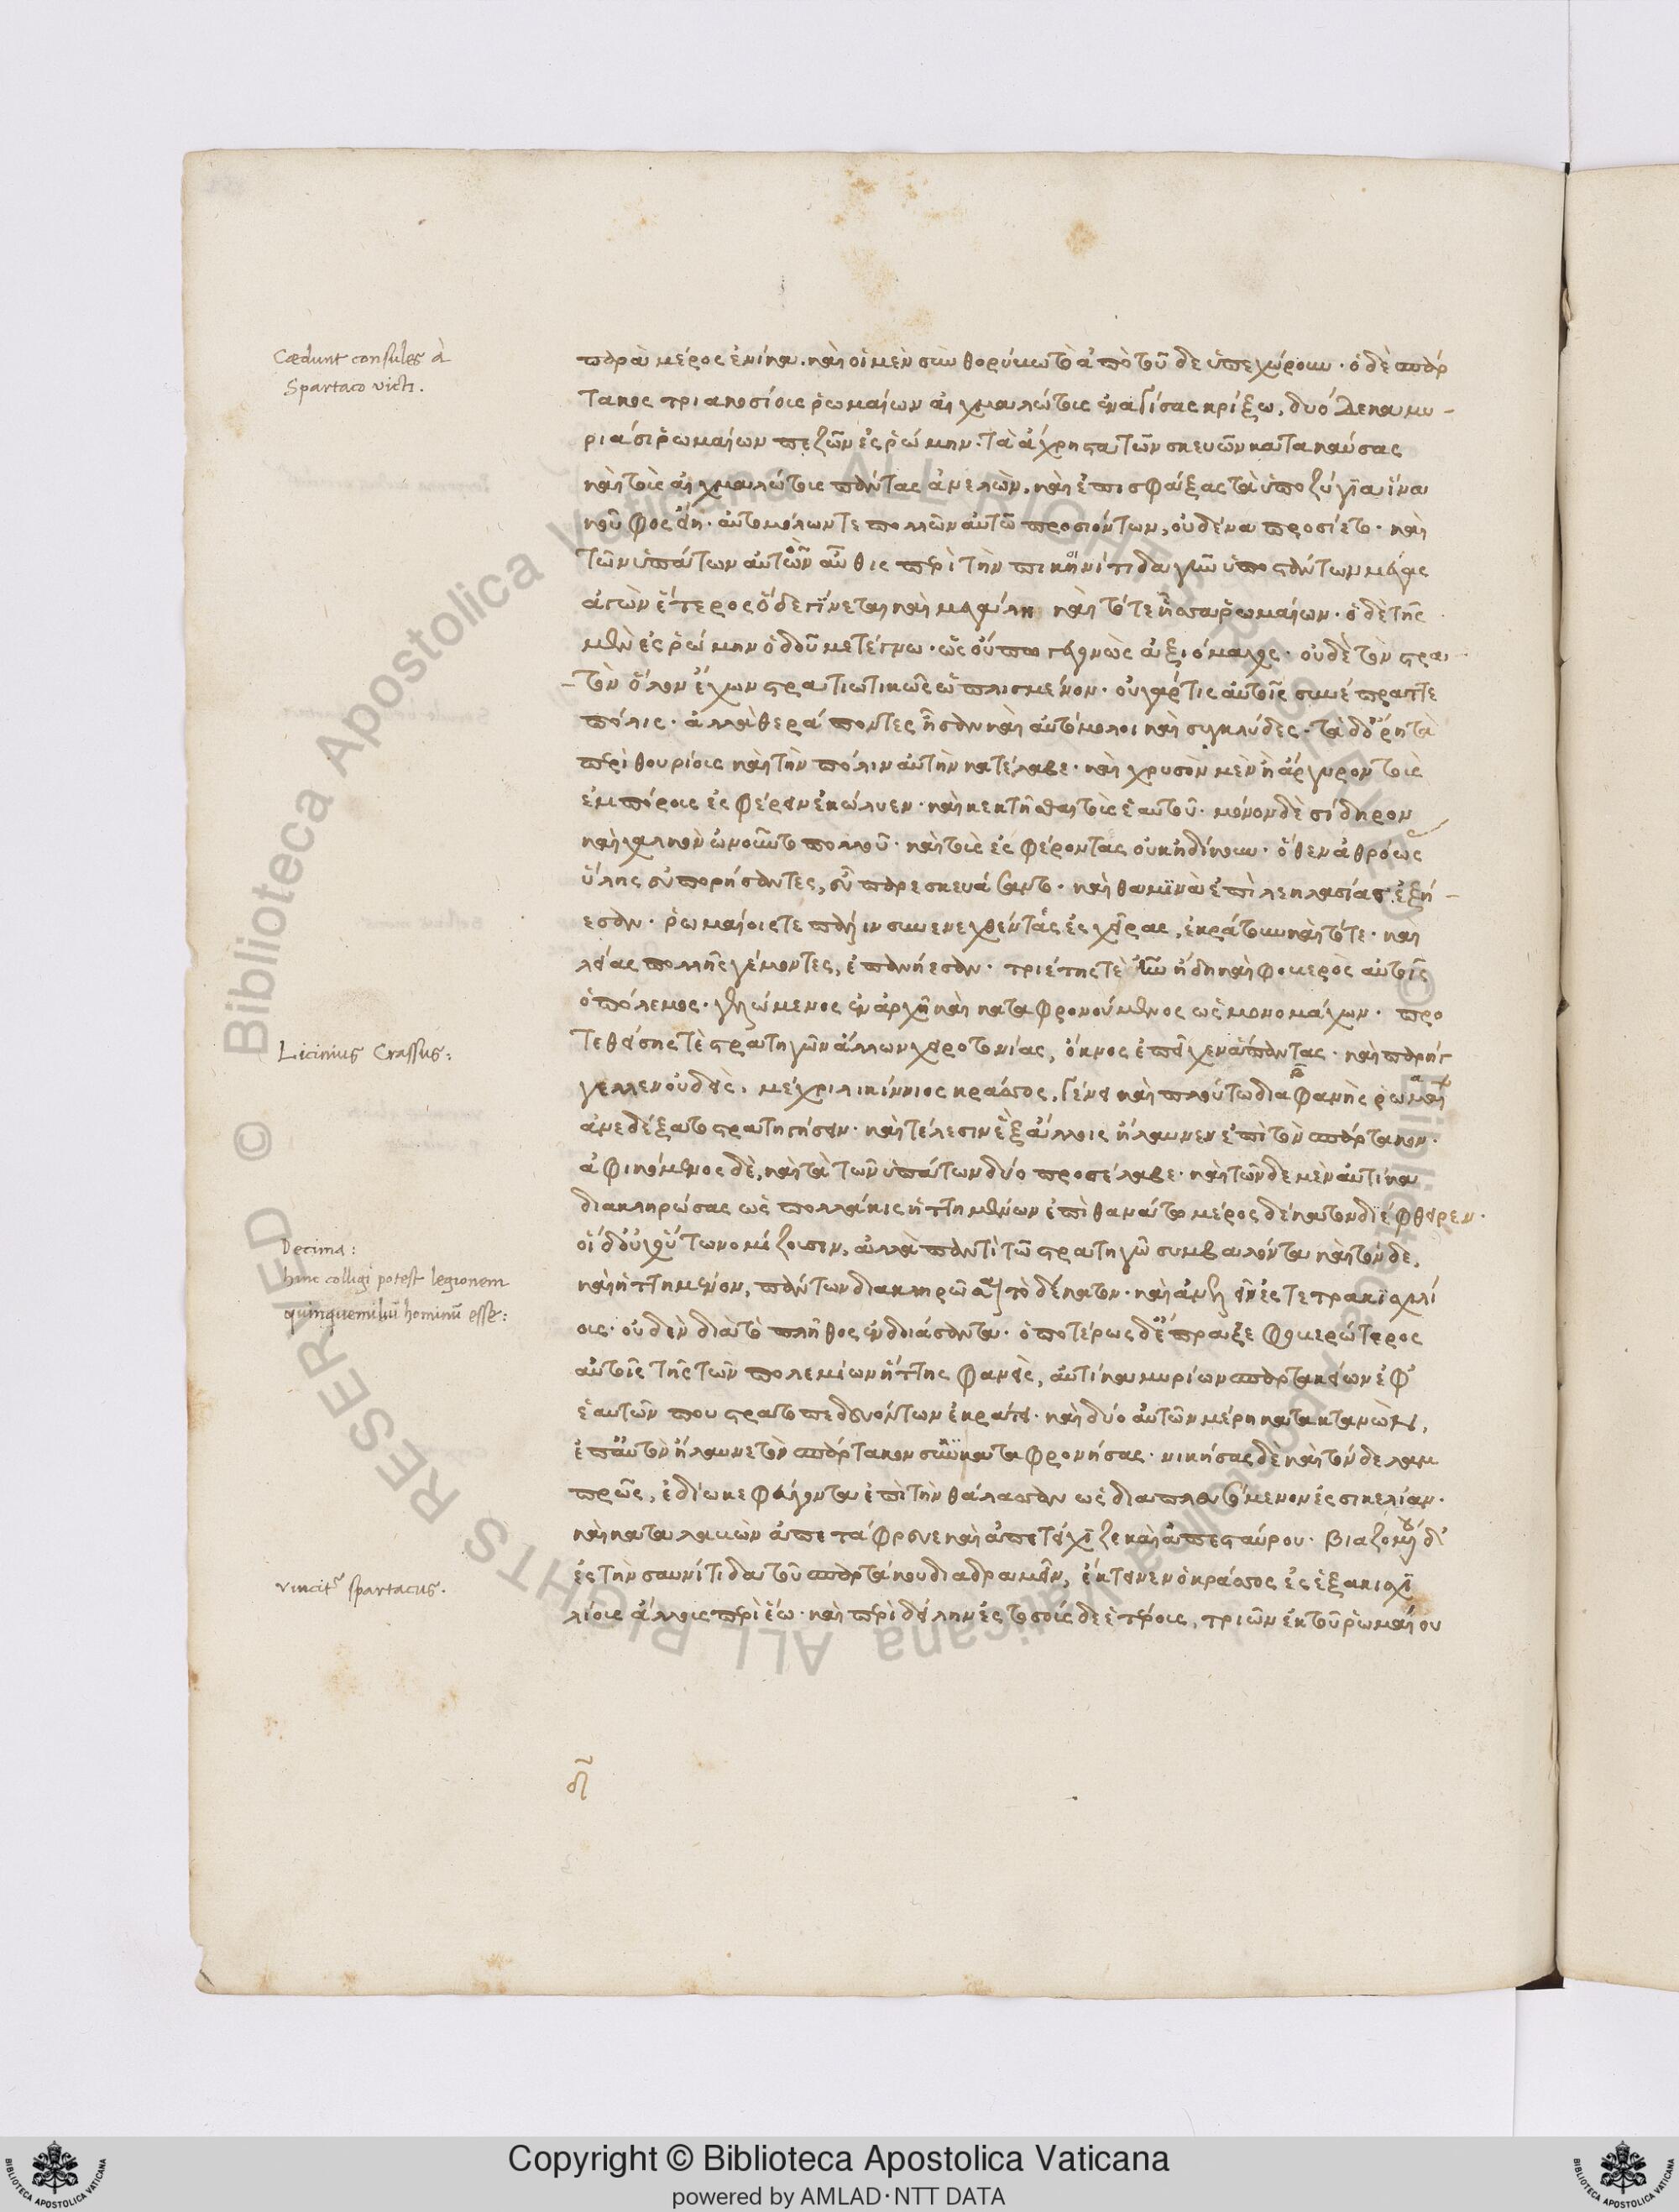 Cædunt consules à
Spartaco victi.
παρὰ μέρος ἐνίκα. καὶ οἱ μὲν σὺν θορύβω τὸ ἀπὸ τοῦδε ὑπεχώρουν· ὁ δὲ σπάρ
τακος τριακοσίους ῥωμαίων αἰχμαλώτους ἐναγίσας κρίξω, δυόδεκα μυ-
ριάσι ῥωμαίων πεζῶν ἐς ῥώμην· τὰ ἄχρηστα τῶν σκευῶν κατακαύσας
καὶ τοὺς αἰχμαλώτους πάντας ἀνελὼν, καὶ ἐπισφάξας τὰ ὑποζύγια ἵνα
κοῦφος εἴη· αὐτομόλων τε πολλῶν αὐτῶ προσιόντων, οὐδένα προσίετο· καὶ
τῶν ὑπάτων αὐτὸν αὖθις περὶ τὴν πικηνίτιδα γῆν ὑποστάντων μέγας
ἀγὼν ἕτερος ὅδε γίνεται καὶ μεγάλη καὶ τότε ἧσσα ῥωμαίων· ὁ δὲ τῆς
μὲν ἐς ῥώμην ὁδοῦ μετέγνω· ὡς οὔπω γεγονὼς ἀξιόμαχος· οὐδὲ τὸν στρα
τὸν ὅλον ἔχων στρατιωτικῶς ὡπλισμένον· οὐ γάρ τις αὐτοῖς συνέπραττε
πόλις· ἀλλὰ θεράποντες ἦσαν καὶ αὐτόμολοι καὶ συγκλύδες· τὰ δ' ὄρη τὰ
περὶ θουρίους καὶ τὴν πόλιν αὐτὴν κατέλαβε· καὶ χρυσὸν μὲν ἢ ἄργυρον τοὺς
ἐμπόρους ἐσφέρειν ἐκώλυεν· καὶ κεκτῆσθαι τοὺς ἑαυτοῦ· μόνον δὲ σίδηρον
καὶ χαλκὸν ὠνοῦντο πολλοῦ· καὶ τοὺς ἐσφέροντας οὐκ ἠδίκουν· ὅθεν ἀθρόως
ὕλης εὐπορήσαντες, εὖ παρεσκευάσαντο· καὶ θαμινὰ ἐπὶ λεηλασίας ἐξῄ-
εσαν· ῥωμαίοις τε πάλιν συνενεχθέντες ἐς χεῖρας, ἐκράτουν καὶ τότε· καὶ
λείας πολλῆς γέμοντες, ἐπανῄεσαν· τριέτης τὲ ἦν ἤδη καὶ φοβερὸς αὐτοῖς
ὁ πόλεμος· γελώμενος ἐν ἀρχῆ καὶ καταφρονούμενος ὡς μονομάχων· προ
Licinius Crassus:
τεθείσης τὲ στρατηγῶν ἄλλων χειροτονίας, ὄκνος ἐπεῖχεν ἅπαντας· καὶ παρήγ
γελλεν οὐδεὶς, μέχρι λικίννιος κράσσος, γένει καὶ πλούτω διαφανὴς ῥωμαί
ἀνεδέξατο στρατηγήσειν· καὶ τέλεσιν ἓξ ἄλλοις ἤλαυνεν ἐπὶ τὸν σπάρτακον·
ἀφικόμενος δὲ, καὶ τὰ τῶν ὑπάτων δύο προσέλαβε· καὶ τῶνδε μὲν αὐτίκα
διακληρώσας ὡς πολλάκις ἡττημένων ἐπὶ θανάτω μέρος δέκατον διέφθειρεν·
Decima:
hinc colligi potest legionem
quinquemiliu hominu esse:
οἱ δ' οὐχ οὕτω νομίζουσιν, ἀλλὰ παντὶ τῶ στρατῶ συμβαλόντα καὶ τόνδε,
καὶ ἡττημένον, πάντων διακληρῶσαι τὸ δέκατον· καὶ ἀνελεῖν ἐς τετρακισχιλί
ους· οὐδὲν διὰ τὸ πλῆθος ἐνδοιάσαντα· ὁποτέρως δ' ἔπραξε φοβερώτερος
αὐτοῖς τῆς τῶν πολεμίων ἥττης φανεὶς, αὐτίκα μυρίων σπαρτακείων ἐφ'
ἑαυτῶν που στρατοπεδευόντων ἐκράτει· καὶ δύο αὐτῶν μέρη κατακτανὼν,
ἐπ' αὐτὸν ἤλαυνε τὸν σπάρτακον σὺν καταφρονήσας· νικήσας δὲ καὶ τόνδε λαμ
πρῶς, ἐδίωκε φεύγοντα ἐπὶ τὴν θάλασσαν ὡς διαπλευσόμενον ἐς σικελίαν·
καὶ καταλαβὼν ἀπετάφρευε καὶ ἀπετείχιζε καὶ ἀπεσταύρου· βιαζομένου δ'
vincit Spartacus.
ἐς τὴν σαυνίτιδα τοῦ σπαρτάκου διαδραμεῖν, ἔκτεινεν ὁ κράσσος ἐς ἑξακισχι
λίους ἄλλους περὶ ἕω· καὶ περὶ δείλην ἐς τοσούσδε ἑτέρους, τριῶν ἐκ τοῦ ῥωμαίου
Copyright © Biblioteca Apostolica Vaticana
powered by AMLAD·NTT DATA